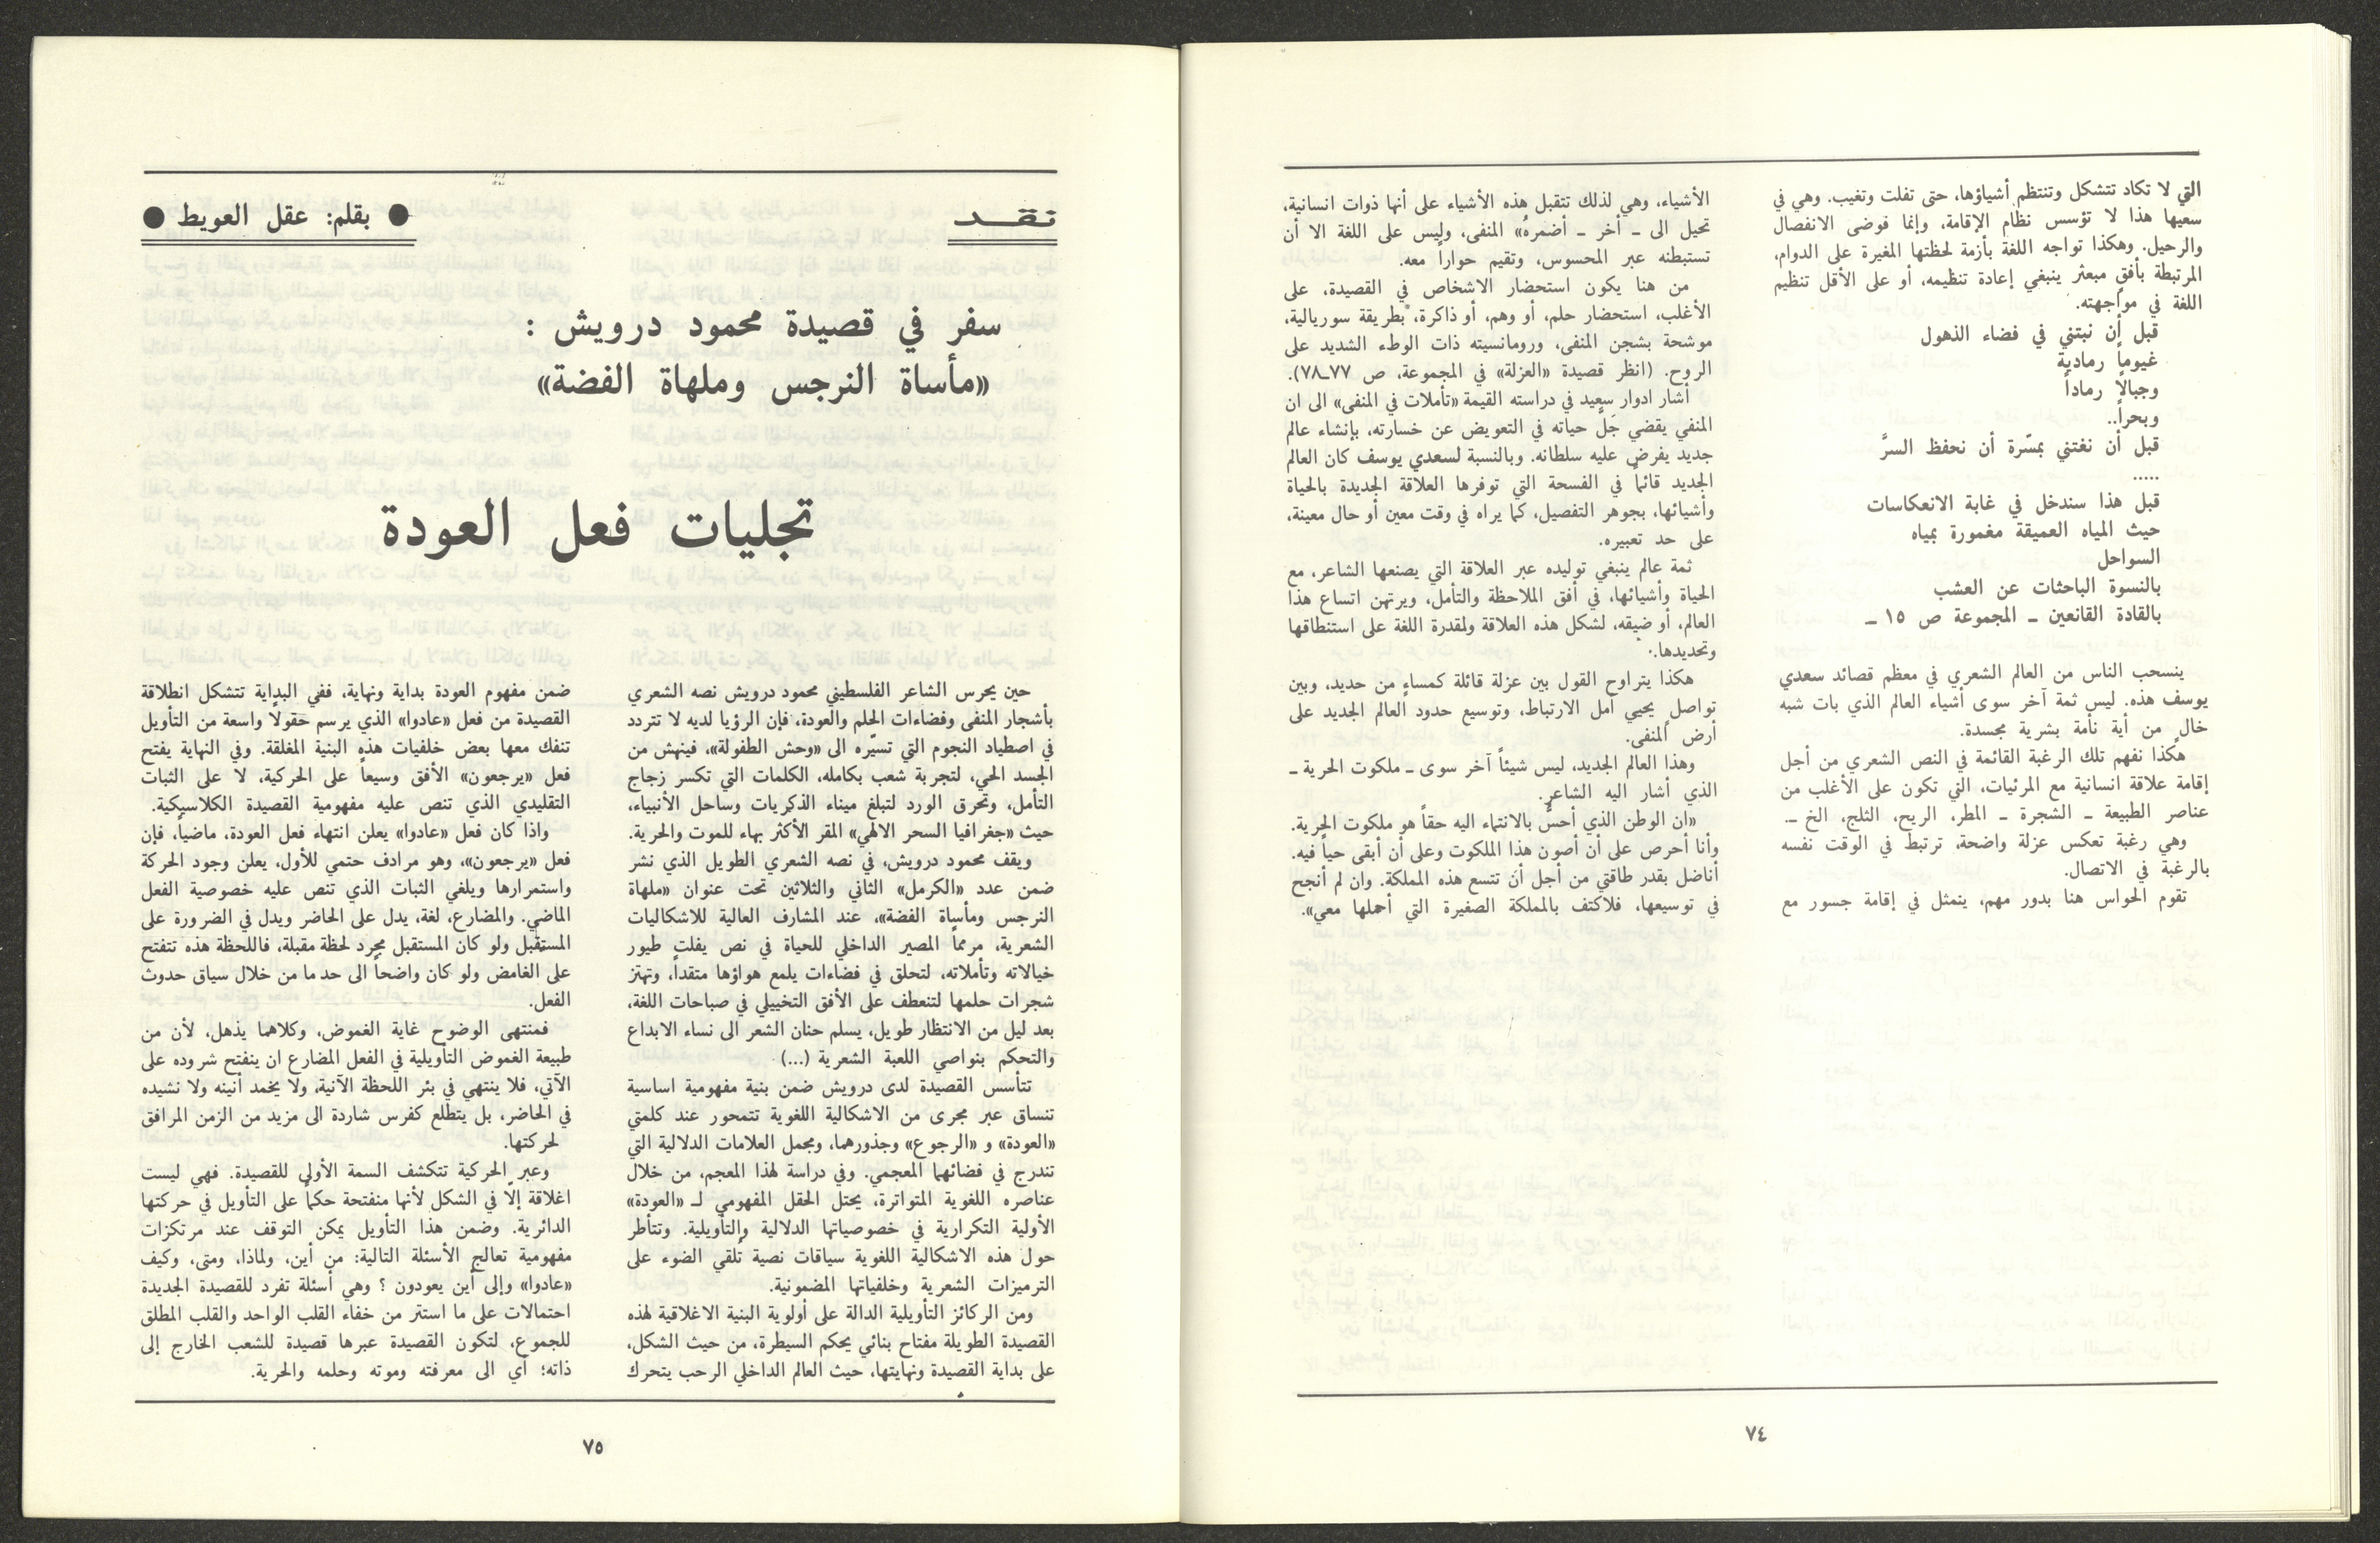 التي لا تكاد تتشكل وتنتظم أشياؤها، حتى تفلت وتغيب. وهي في
سعيها هذا لا تؤسس نظام الإقامة، وإنما فوضى الانفصال
والرحيل. وهكذا تواجه اللغة بأزمة لحظتها المغيرة على الدوام،
المرتبطة بأفق مبعثر ينبغي إعادة تنظيمه، أو على الأقل تنظيم
اللغة في مواجهته.
قبل أن نبتني في فضاء الذهول
غيوماً رمادية
وجبالاً رماداً
وبحراً..
قبل أن نغتني بمسّرة أن نحفظ السرَّ
.....
قبل هذا سندخل في غابة الانعكاسات
حيث المياه العميقة مغمورة بمياه
السواحل
بالنسوة الباحثات عن العشب
بالقادة القانعين ـ المجموعة ص ١٥ ـ
ينسحب الناس من العالم الشعري في معظم قصائد سعدي
يوسف هذه. ليس ثمة آخر سوى أشياء العالم الذي بات شبه
خال من أية نأمة بشرية مجسدة.
هكذا نفهم تلك الرغبة القائمة في النص الشعري من أجل
إقامة علاقة انسانية مع المرئيات، التي تكون على الأغلب من
عناصر الطبيعة ـ الشجرة ـ المطر، الريح، الثلج، الخ ـ.
وهي رغبة تعكس عزلة واضحة، ترتبط في الوقت نفسه
بالرغبة في الاتصال.
تقوم الحواس هنا بدور مهم، يتمثل في إقامة جسور مع
الأشياء، وهي لذلك تتقبل هذه الأشياء على أنها ذوات انسانية،
تحيل الى ـ أخر ـ أضمرهُ» المنفى، وليس على اللغة الا أن
تستبطنه عبر المحسوس، وتقيم حواراً معه.
من هنا يكون استحضار الاشخاص في القصيدة، على
الأغلب، استحضار حلم، أو وهم، أو ذاكرة، بطريقة سوريالية،
موشحة بشجن المنفى، ورومانسيته ذات الوطء الشديد على
الروح. (انظر قصيدة «العزلة» في المجموعة، ص ٧٧ـ٧٨).
أشار ادوار سعيد في دراسته القيمة «تأملات في المنفى» الى ان
المنفي يقضي جَلَّ حياته في التعويض عن خسارته، بإنشاء عالم
جديد يفرض عليه سلطانه. وبالنسبة لسعدي يوسف كان العالم
الجديد قائماً في الفسحة التي توفرها العلاقة الجديدة بالحياة
وأشيائها، بجوهر التفصيل، كما يراه في وقت معين أو حال معينة،
على حد تعبيره.
ثمة عالم ينبغي توليده عبر العلاقة التي يصنعها الشاعر، مع
الحياة وأشيائها، في أفق الملاحظة والتأمل، ويرتهن اتساع هذا
العالم، أو ضيقه، لشكل هذه العلاقة ولمقدرة اللغة على استنطاقها
وتحديدها.
هكذا يتراوح القول بين عزلة قائلة كمساءٍ من حديد، وبين
تواصل يحيي أمل الارتباط، وتوسيع حدود العالم الجديد على
أرض المنفى.
وهذا العالم الجديد، ليس شيئاً آخر سوى ـ ملكوت الحرية ـ
الذي أشار اليه الشاعر.
«ان الوطن الذي أحسُّ بالانتماء اليه حقاً هو ملكوت الحرية.
وأنا أحرص على أن أصون هذا الملكوت وعلى أن أبقى حياً فيه.
أناضل بقدر طاقتي من أجل أن تتسع هذه المملكة. وان لم أنجح
في توسيعها، فلاكتف بالمملكة الصغيرة التي أحملها معي».
٧٤
نـقـد
● بقلم: عقل العويط ●
سفر في قصيدة محمود درويش :
«مأساة النرجس وملهاة الفضة»
تجليات فعل العودة
حين يحرس الشاعر الفلسطيني محمود درويش نصه الشعري
بأشجار المنفى وفضاءات الحلم والعودة، فإن الرؤيا لديه لا تتردد
في اصطياد النجوم التي تسيّره الى «وحش الطفولة»، فينهش من
الجسد الحي، لتجربة شعب بكامله، الكلمات التي تكسر زجاج
التأمل، وتحرق الورد لتبلغ ميناء الذكريات وساحل الأنبياء،
حيث «جغرافيا السحر الالهي» المقر الأكثر بهاء للموت والحرية.
ويقف محمود درويش، في نصه الشعري الطويل الذي نشر
ضمن عدد «الكرمل» الثاني والثلاثين تحت عنوان «ملهاة
النرجس ومأساة الفضة»، عند المشارف العالية للاشكاليات
الشعرية، مرمماً المصير الداخلي للحياة في نص يفلت طيور
خيالاته وتأملاته، لتحلق في فضاءات يلمع هواؤها متقداً، وتهتز
شجرات حلمها لتنعطف على الأفق التخييلي في صباحات اللغة،
بعد ليل من الانتظار طويل، يسلم حنان الشعر الى نساء الابداع
والتحكم بنواصي اللعبة الشعرية (...)
تتأسس القصيدة لدى درويش ضمن بنية مفهومية اساسية
تنساق عبر مجرى من الاشكالية اللغوية تتمحور عند كلمتي
«العودة» و «الرجوع» وجذورهما، ومجمل العلامات الدلالية التي
تندرج في فضائهما المعجمي. وفي دراسة لهذا المعجم، من خلال
عناصره اللغوية المتواترة، يحتل الحقل المفهومي لـ «العودة»
الأولية التكرارية في خصوصياتها الدلالية والتأويلية. وتتأطر
حول هذه الاشكالية اللغوية سياقات نصية تُلقي الضوء على
الترميزات الشعرية وخلفياتها المضمونية.
ومن الركائز التأويلية الدالة على أولوية البنية الاغلاقية لهذه
القصيدة الطويلة مفتاح بنائي يحكم السيطرة، من حيث الشكل،
على بداية القصيدة ونهايتها، حيث العالم الداخلي الرحب يتحرك
ضمن مفهوم العودة بداية ونهاية، ففي البداية تتشكل انطلاقة
القصيدة من فعل «عادوا» الذي يرسم حقولاً واسعة من التأويل
تنفك معها بعض خلفيات هذه البنية المغلقة. وفي النهاية يفتح
فعل «يرجعون» الأفق وسيعاً على الحركية، لا على الثبات
التقليدي الذي تنص عليه مفهومية القصيدة الكلاسيكية.
واذا كان فعل «عادوا» يعلن انتهاء فعل العودة، ماضياً، فإن
فعل «يرجعون»، وهو مرادف حتمي للأول، يعلن وجود الحركة
واستمرارها ويلغي الثبات الذي تنص عليه خصوصية الفعل
الماضي. والمضارع، لغة، يدل على الحاضر ويدل في الضرورة على
المستقبل ولو كان المستقبل مجرد لحظة مقبلة، فاللحظة هذه تتفتح
على الغامض ولو كان واضحاً الى حد ما من خلال سياق حدوث
الفعل.
فمنتهى الوضوح غاية الغموض، وكلاهما يذهل، لأن من
طبيعة الغموض التأويلية في الفعل المضارع ان ينفتح شروده على
الآتي، فلا ينتهي في بئر اللحظة الآنية، ولا يخمد أنينه ولا نشيده
في الحاضر، بل يتطلع كفرس شاردة الى مزيد من الزمن المرافق
لحركتها.
وعبر الحركية تتكشف السمة الأولى للقصيدة. فهي ليست
اغلاقة إلاّ في الشكل لأنها منفتحة حكماً على التأويل في حركتها
الدائرية. وضمن هذا التأويل يمكن التوقف عند مرتكزات
مفهومية تعالج الأسئلة التالية: من أين، ولماذا، ومتى، وكيف
«عادوا» وإلى أين يعودون ؟ وهي أسئلة تفرد للقصيدة الجديدة
احتمالات على ما استتر من خفاء القلب الواحد والقلب المطلق
للجموع، لتكون القصيدة عبرها قصيدة للشعب الخارج إلى
ذاته؛ أي الى معرفته وموته وحلمه والحرية.
٧٥